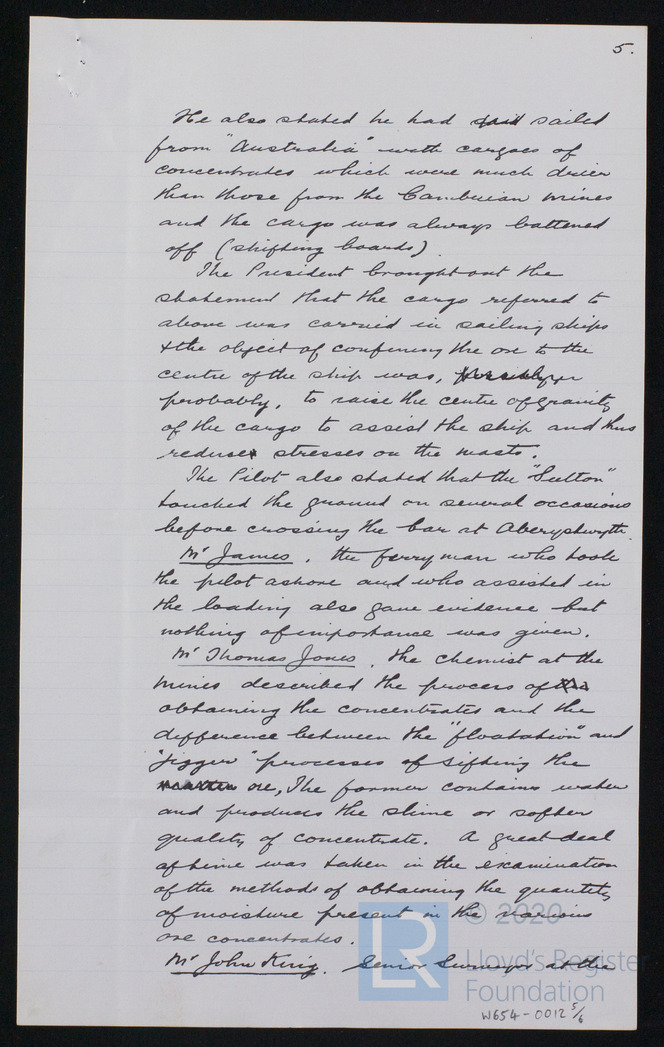 5.
He also stated he had said sailed
from "Australia" with cargoes of
concentrates which were much drier
than those from the Cambrian mines
and the cargo was always battened
off (shifting boards)
The President brought out the
statement that the cargo referred to
above was carried in sailing ships
& the object of confining the ore to the
centre of the ship was,
probably, to raise the centre of gravity
of the cargo to assist the ship and thus
reduce stresses on the masts.
The Pilot also stated that the "Sutton"
touched the ground on several occasions
before crossing the bar at Aberystwyth.
Mr James, the ferryman who took
the pilot ashore and who assisted in
the loading also gave evidence but
nothing of importance was given.
Mr Thomas Jones, the chemist at the
mines described the process of
obtaining the concentrates and the
difference between the "floatation" and
"jigger" processes of sifting the
ore, The former contains water
and produces the slime or softer
quality of concentrate. A great deal
of time was taken in the examination
of the methods of obtaining the quantity
of moisture present in the various
ore concentrates.
Mr John King. Senior Surveyor at the
© 2020
LR
Lloyd's Register
Foundation
W654-0012 5/6